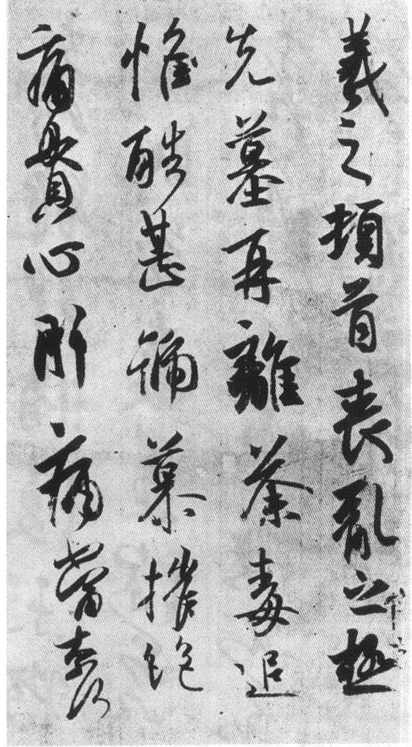 羲之頓首喪亂之極
先墓再離荼毒追
惟酷甚號慕摧絕
痛貫心肝痛當奈何奈何